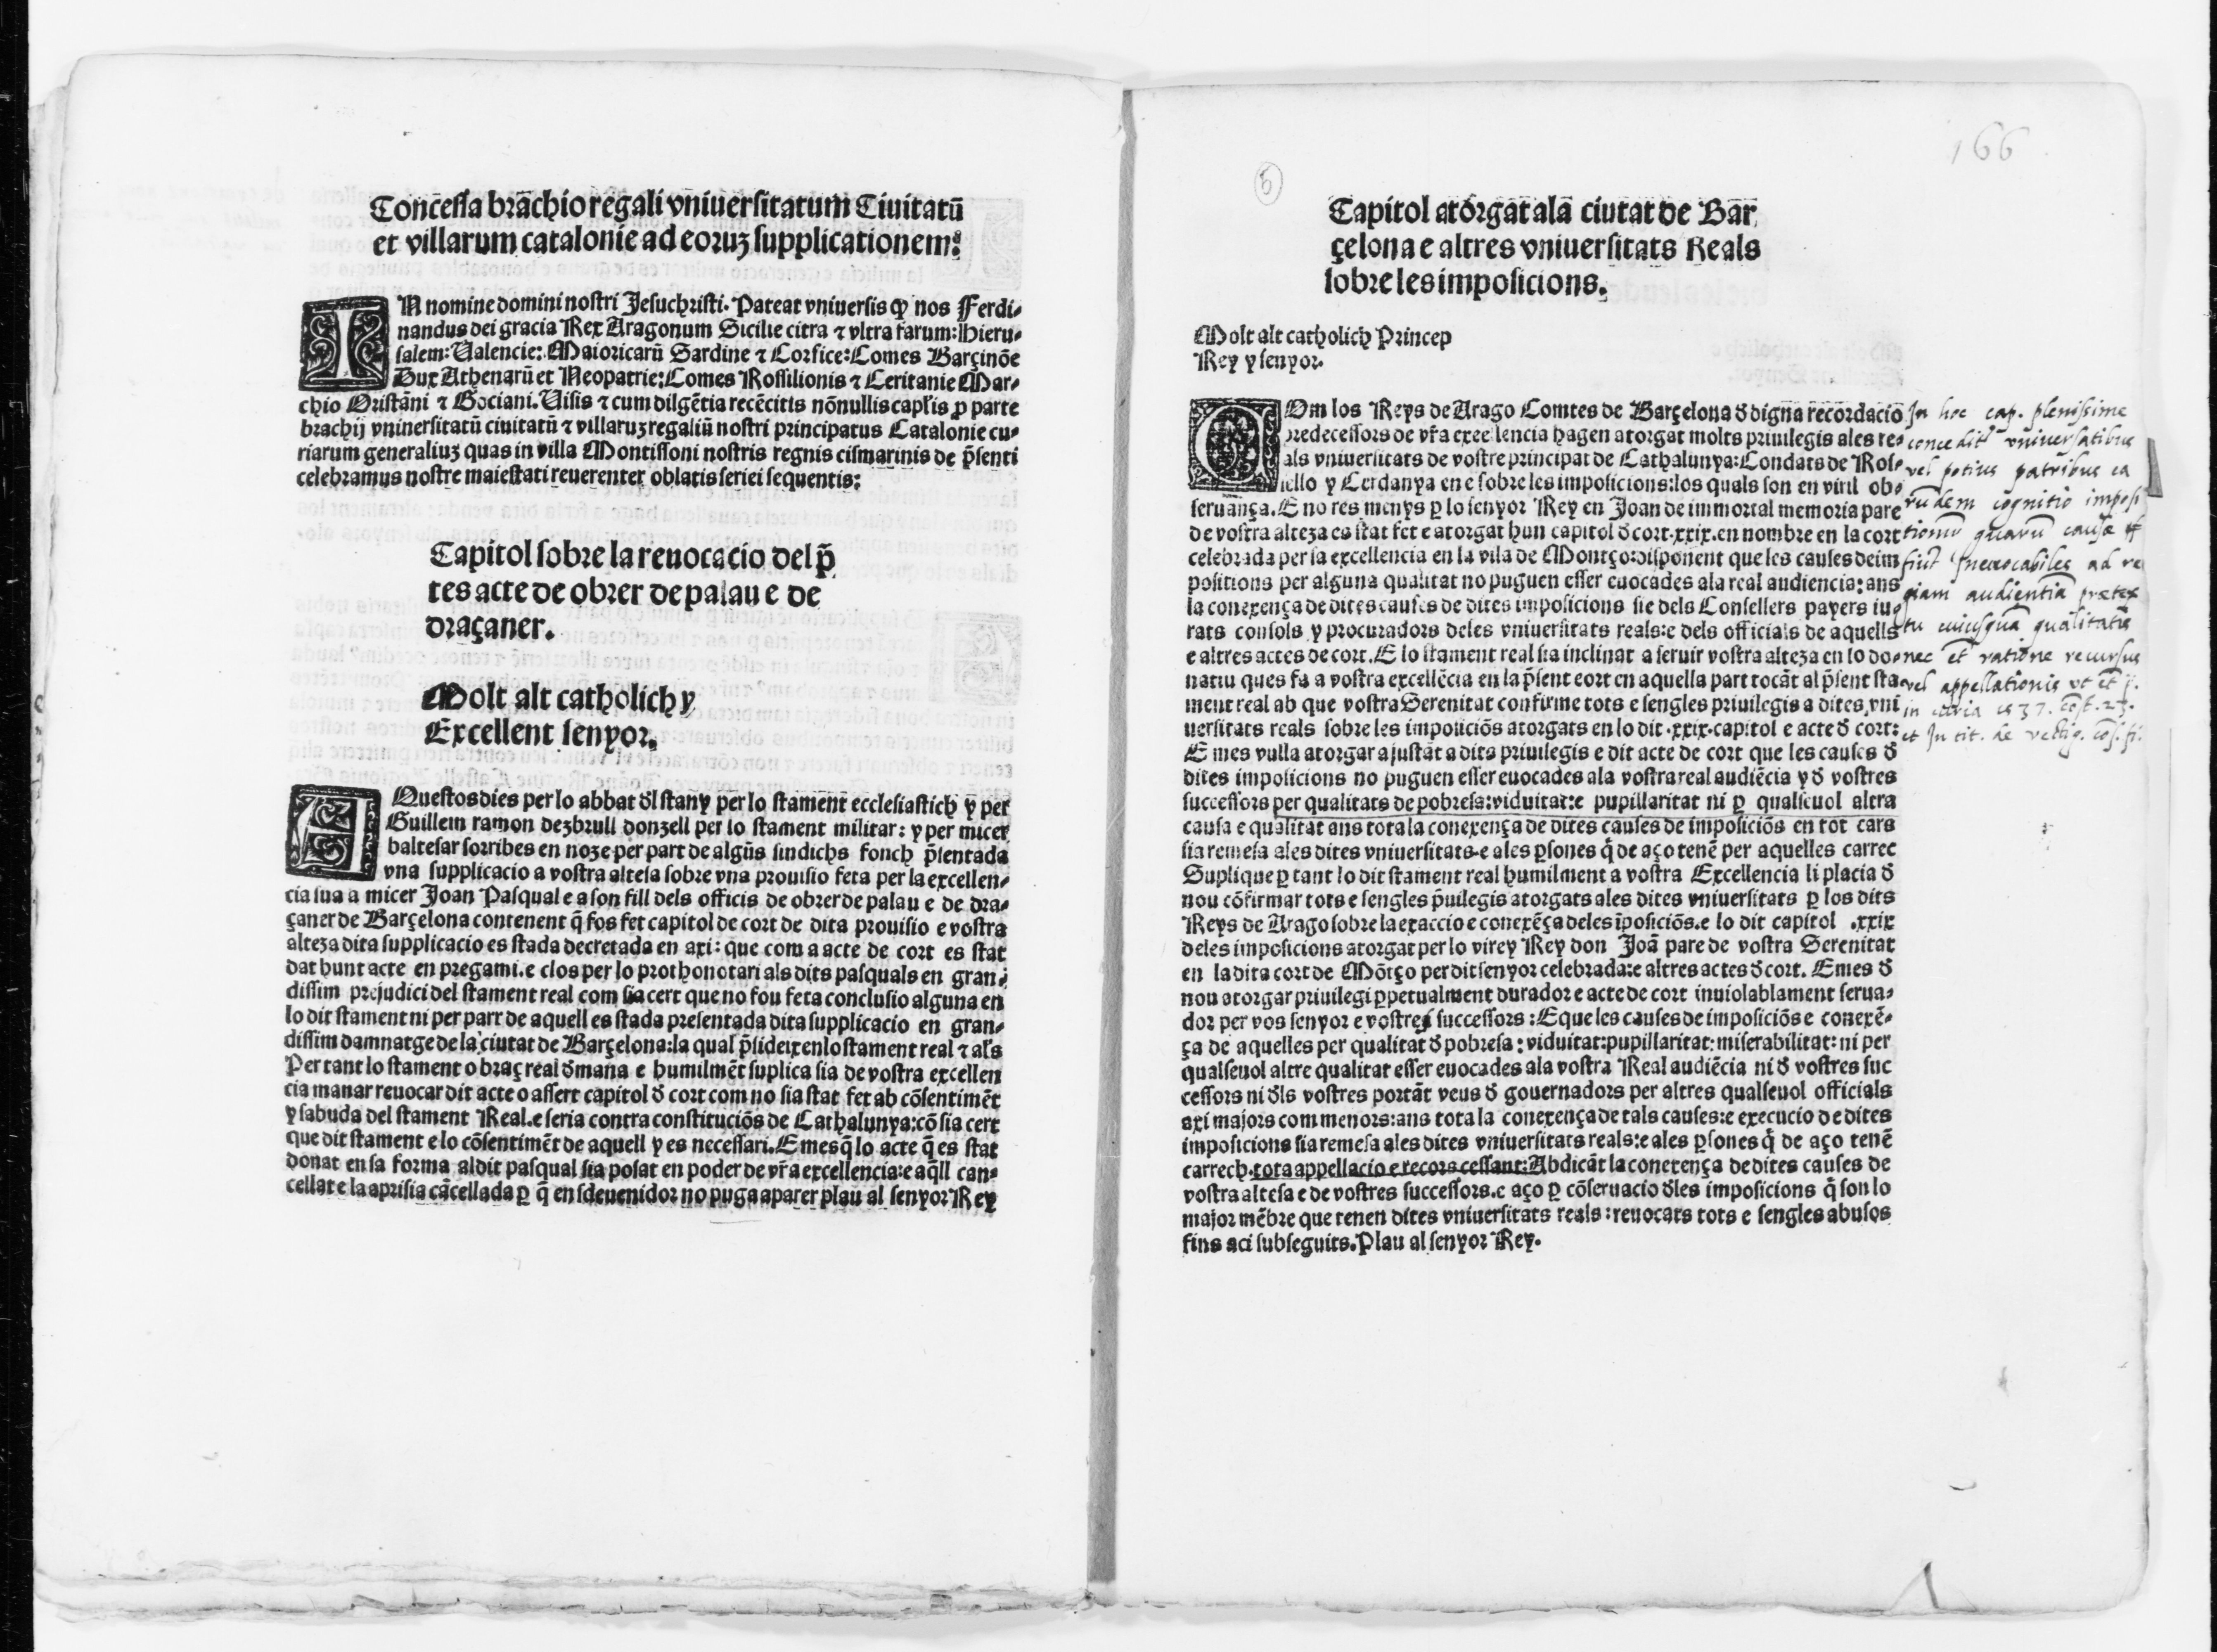 Concessa brāchio regali vniuersitatum Ciuitatū
et villarum catalonie ad eoruʒ supplicationem:
IN nomine domini nostri Jesuchristi. Pateat vniuersis ꝙ nos Ferdi-
nandus dei gracia Rex Aragonum Sicilie citra ⁊ vltra farum: Hieru-
salem: Valencie: Maioricarū Sardine ⁊ Corsice: Comes Barçinōe
Dux Athenarū et Neopatrie: Comes Rossilionis ⁊ Ceritanie Mar-
chio Oristāni ⁊ Gociani. Visis ⁊ cum dilgētia recēcitis nōnullis capłis ꝑ parte
brachij vniuersitatū ciuitatū ⁊ villaruʒ regaliū nostri principatus Catalonie cu-
riarum generaliuʒ quas in villa Montissoni nostris regnis cismarinis de p̄senti
celebramus nostre maiestati reuerenter oblatis seriei sequentis:
Capitol sobre la reuocacio del p̄
tes acte de obrer de palau e de
draçaner.
Molt alt catholich y
Excellent senyor.
AQuestos dies per lo abbat ďl stany per lo stament ecclesiastich y per
Guillem ramon dezbrull donzell per lo stament militar: y per micer
baltesar sorribes en noze per part de algūs sindichs fonch p̄sentada
vna supplicacio a vostra altesa sobre vna prouisio feta per la excellen-
cia sua a micer Joan Pasqual e a son fill dels officis de obrer de palau e de dra-
çaner de Barçelona contenent q̄ fos fet capitol de cort de dita prouisio e vostra
alteza dita supplicacio es stada decretada en axi: que com a acte de cort es stat
dat hunt acte en pregami. e clos per lo prothonotari als dits pasquals en gran-
dissim prejudici del stament real com sia cert que no fou feta conclusio alguna en
lo dit stament ni per parr de aquell es stada presentada dita supplicacio en gran-
dissim damnatge de la ciutat de Barçelona: la qual p̄sideix en lo stament real ⁊ als
Per tant lo stament o braç real ďmana e humilmēt suplica sia de vostra excellen
cia manar reuocar dit acte o assert capitol ď cort com no sia stat fet ab cōsentimēt
y sabuda del stament Real. e seria contra constituciōs de Cathalunya: cō sia cert
que dit stament e lo cōsentimēt de aquell y es necessari. E mes q̄ lo acte q̄ es stat
donat en sa forma al dit pasqual sia posat en poder de vr̄a excellencia: e aq̄ll can-
cellat e la aprisia cācellada ꝑ q̄ en sdeuenidor no puga aparer plau al senyor Rey
166
6
Capitol atorgat ala ciutat de Bar
çelona e altres vniuersitats Reals
sobre les imposicions.
Molt alt catholich Princep
Rey y senyor.
COm los Reys de Arago Comtes de Barçelona ď digna recordacio
predecessors de vr̄a excelencia hagen atorgat molts priuilegis ales re-
als vniuersitats de vostre principat de Cathalunya: Condats de Ros-
sello y Cerdanya en e sobre les imposicions: los quals son en viril ob-
seruança. E no res menys ꝑ lo senyor Rey en Joan de immortal memoria pare
de vostra alteza es stat fet e atorgat hun capitol ď cort .xxix. en nombre en la cort
celebrada per sa excellencia en la vila de Montço: disponent que les causes de im
positions per alguna qualitat no puguen esser euocades ala real audiencia: ans
la conexença de dites causes de dites imposicions sie dels Consellers payers iu-
rats consols y procuradors deles vniuersitats reals: e dels officials de aquells
e altres actes de cort. E lo stament real sia inclinat a seruir vostra alteza en lo do-
natiu ques fa a vostra excellēcia en la p̄sent cort en aquella part tocāt al p̄sent sta-
ment real ab que vostra Serenitat confirme tots e sengles priuilegis a dites vni
uersitats reals sobre les imposiciōs atorgats en lo dit .xxix. capitol e acte ď cort:
E mes vulla atorgar ajustāt a dits priuilegis e dit acte de cort que les causes ď
dites imposicions no puguen esser euocades ala vostra real audiēcia y ď vostres
successors per qualitats de pobresa: viduitat: e pupillaritat ni ꝑ qualseuol altra
causa e qualitat ans tota la conexença de dites causes de imposiciōs en tot cars
sia remesa ales dites vniuersitats e ales ꝑsones q̄ de aço tenē per aquelles carrec
Suplique ꝑ tant lo dit stament real humilment a vostra Excellencia li placia ď
nou cōfirmar tots e sengles p̄uilegis atorgats ales dites vniuersitats ꝑ los dits
Reys de Arago sobre la exaccio e conexēça deles īposiciōs. e lo dit capitol .xxix
deles imposicions atorgat per lo virey Rey don Joā pare de vostra Serenitat
en la dita cort de Mōtço per dit senyor celebrada: e altres actes ď cort. E mes ď
nou atorgar priuilegi ꝑpetualment durador e acte de cort inuiolablament serua-
dor per vos senyor e vostres successors: E que les causes de imposiciōs e conexē-
ça de aquelles per qualitat ď pobresa: viduitat: pupillaritat: miserabilitat: ni per
qualseuol altre qualitat esser euocades ala vostra Real audiēcia ni ď vostres suc
cessors ni ďls vostres portāt veus ď gouernadors per altres qualseuol officials
axi majors com menors: ans tota la conexença de tals causes: e execucio de dites
imposicions sia remesa ales dites vniuersitats reals: e ales ꝑsones q̄ de aço tenē
carrech. tota appellacio e recors cessant: Abdicāt la conexença de dites causes de
vostra altesa e de vostres successors. e aço ꝑ cōseruacio ďles imposicions q̄ son lo
major mēbre que tenen dites vniuersitats reals: reuocats tots e sengles abusos
fins aci subseguits. Plau al senyor Rey.
In hoc cap. plenissime
concedit vniuersatibus
vel potius patribus ea
rūdem cognitio imposi
tionū quarū causæ
fiūt ineuocabiles ad re
giam audientiā prætex
tu cuiusquā qualitatis
nec et ratione recursus
vel appellationis vt et
in curia 1537. cost. 23.
et in tit. de vectig.